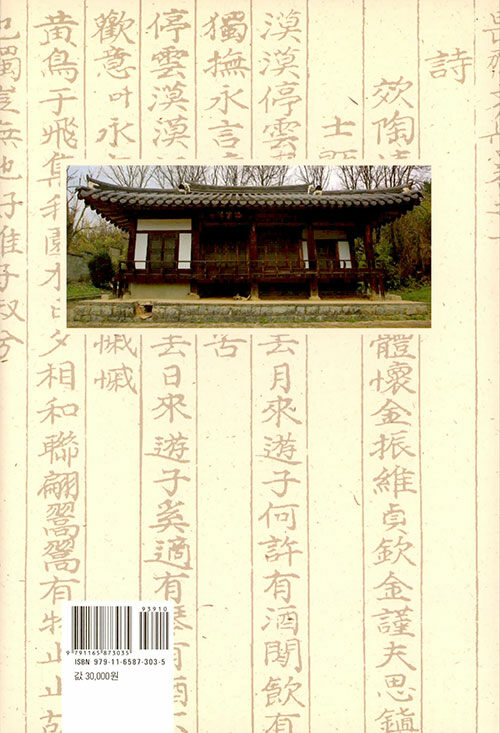 詩
效陶
體懷金振維貞欽金謹夫思鎮
士
漠漠停雲
月來遊子何許有酒閒飲有
獨撫永言
苦
停雲漠漠
日來遊子奚適有
歡意
永
慽慽
黃鳥于飛集
園木日夕相和聯翩
有
止止
獨豈無他子惟子叔兮
93910
9 791165 873035
ISBN 979-11-6587-303-5
값 30,000원